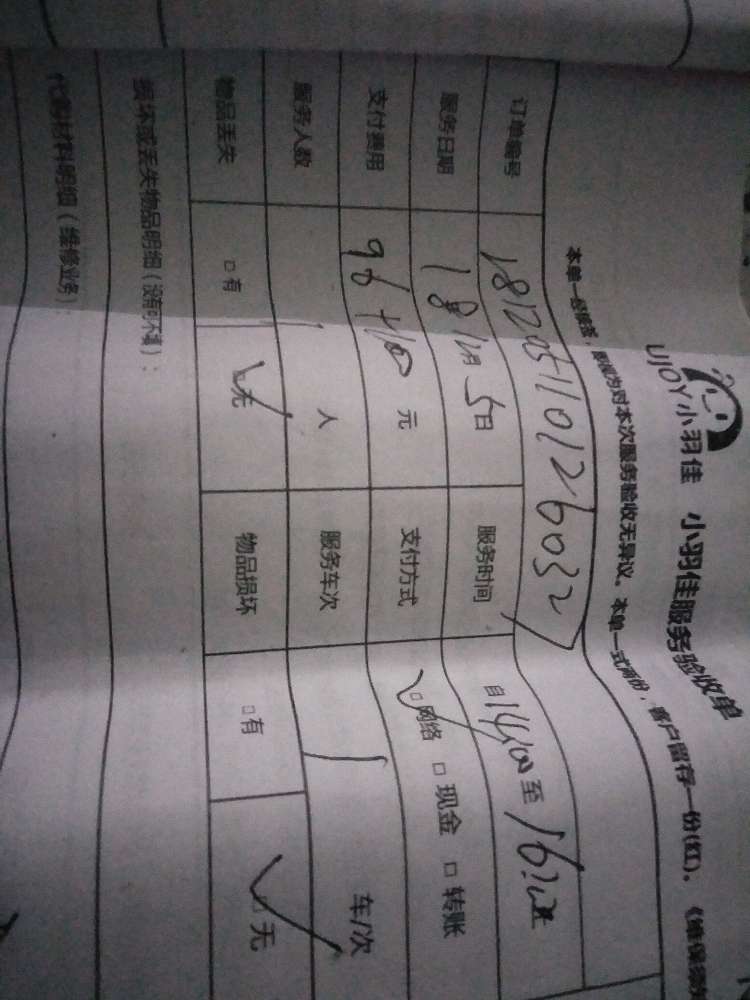 UJOY小羽佳 小羽佳服务验收单
本单一经签署，即视为对本次服务验收无异议。本单一式两份，客户留存一份(红)。
订单编号 181205110126032
服务日期 18 12月 5日 服务时间 自14:00至16:00
支付费用 96+10 元 支付方式 □网络 □现金 □转账
服务人数 1 人 服务车次 1 车/次
物品丢失 □有 □无 物品损坏 □有 □无
损坏或丢失物品明细（没有可不填）：
代购材料明细（维修业务）：